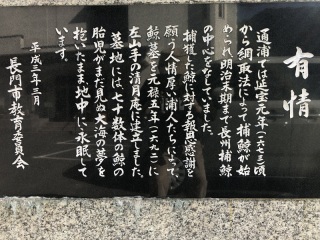 有情
通浦では延宝元年(一六七三)頃
から網取法によって捕鯨が始
められ明治末期まで長州捕鯨
の中心をなしていました。
捕獲した鯨に対する報恩感謝を
願う人情厚い浦人たちによって、
鯨墓を元禄五年(一六九二)に
左山手の清月庵に建立しました。
墓地には、七十数体の鯨の
胎児がまだ見ぬ大海の夢を
抱いたまま地中に永眠して
います。
平成三年三月
長門市教育委員会